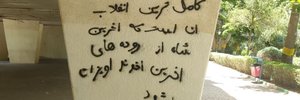 کامل ترین انقلاب
آن است که آخرین
شاه از روده های
آخرین آخوند آویزان
شود